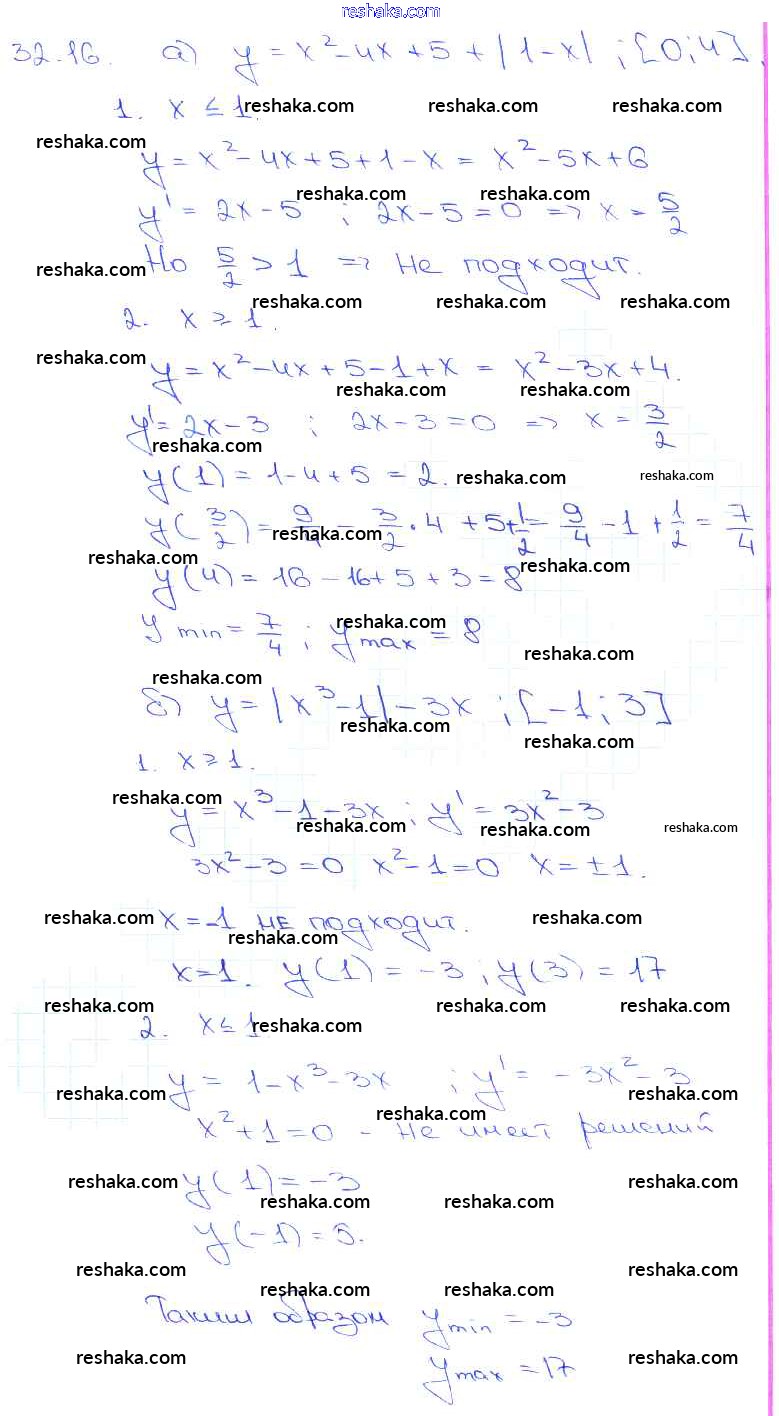 reshaka.com
32.16. а) y = x² - 4x + 5 + |1-x| ; [0; 4].
1. x ≤ 1. reshaka.com reshaka.com reshaka.com
reshaka.com
y = x² - 4x + 5 + 1 - x = x² - 5x + 6
reshaka.com reshaka.com
y' = 2x - 5 ; 2x - 5 = 0 => x = 5/2
reshaka.com Но 5/2 > 1 => не подходит.
reshaka.com reshaka.com reshaka.com
2. x ≥ 1.
reshaka.com
y = x² - 4x + 5 - 1 + x = x² - 3x + 4.
reshaka.com reshaka.com
y' = 2x - 3 ; 2x - 3 = 0 => x = 3/2
reshaka.com
y(1) = 1 - 4 + 5 = 2. reshaka.com reshaka.com
y(3/2) = 9/4 - 3/2 · 4 + 5 + 1/2 = 9/4 - 1 + 1/2 = 7/4
reshaka.com
reshaka.com reshaka.com
y(4) = 16 - 16 + 5 + 3 = 8
reshaka.com
y min = 7/4 ; y max = 8
reshaka.com
reshaka.com
б) y = |x³ - 1| - 3x ; [-1; 3]
reshaka.com
reshaka.com
1. x ≥ 1.
reshaka.com
y = x³ - 1 - 3x ; y' = 3x² - 3
reshaka.com reshaka.com reshaka.com
3x² - 3 = 0 x² - 1 = 0 x = ±1.
reshaka.com x = -1 не подходит. reshaka.com
reshaka.com
x = 1. y(1) = -3 ; y(3) = 17
reshaka.com reshaka.com reshaka.com
2. x ≤ 1. reshaka.com
y = 1 - x³ - 3x ; y' = -3x² - 3
reshaka.com reshaka.com reshaka.com
reshaka.com
x² + 1 = 0 - не имеет решений
reshaka.com y(1) = -3 reshaka.com
reshaka.com reshaka.com
y(-1) = 5.
reshaka.com reshaka.com
reshaka.com reshaka.com
Таким образом y min = -3
reshaka.com y max = 17 reshaka.com